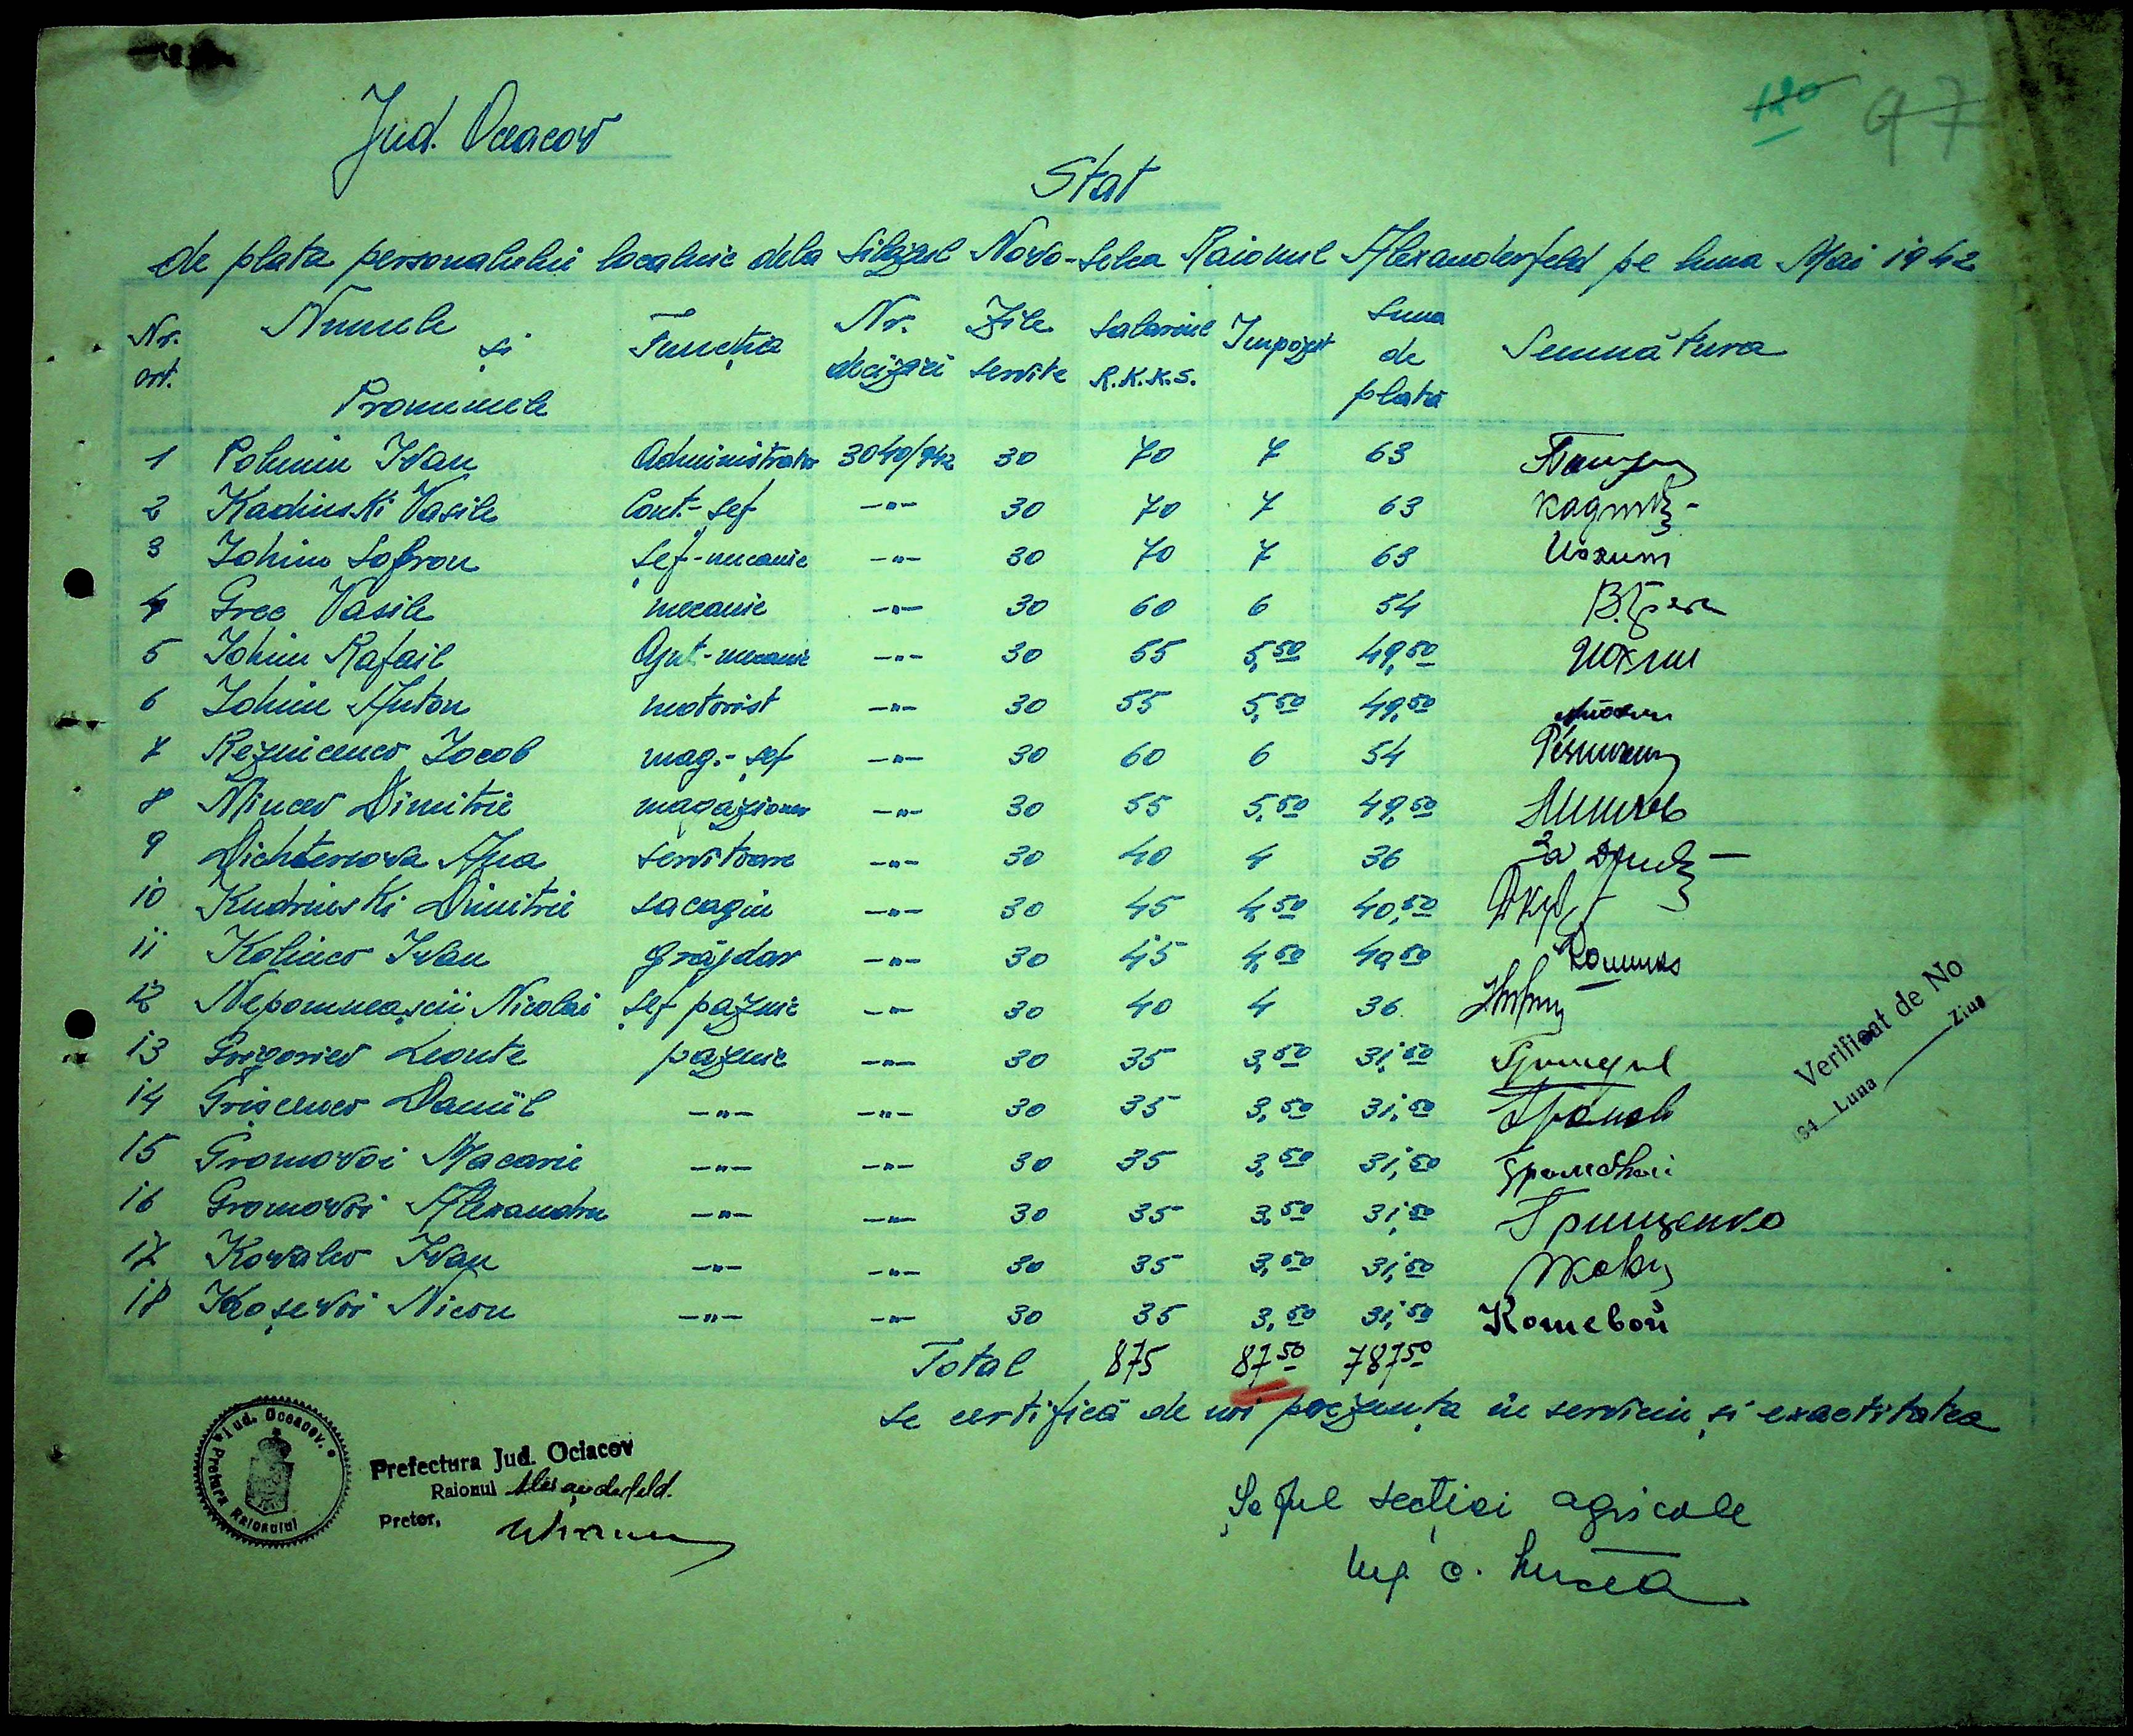 120 97
Jud. Oceacov
Stat
de plata personalului localnic dela Silozul Novo-Selca Raionul Alexanderfeld pe luna Mai 1942
Nr. ort. Numele și Pronumele Funcția Nr. deciziei Zile servite Salariul R.K.K.S. Impozit Suma de plată Semnătura
1 Polinin Ivan Administrator 3040/942 30 70 7 63
2 Kadinski Vasile Cont.-șef -"- 30 70 7 63
3 Iohim Sofron Șef-mecanic -"- 30 70 7 63 Иохим
4 Grec Vasile mecanic -"- 30 60 6 54 В.Грек
5 Iohim Rafail Ajut-mecanic -"- 30 55 5,50 49,50 Иохим
6 Iohim Anton motorist -"- 30 55 5,50 49,50
7 Reznicenco Iacob mag.-șef -"- 30 60 6 54
8 Mincev Dimitrie magazioner -"- 30 55 5,50 49,50
9 Dichterova Ana servitoare -"- 30 40 4 36
10 Kudrinski Dimitrie sacagiu -"- 30 45 4,50 40,50
11 Kolinco Ivan grăjdar -"- 30 45 4,50 40,50
12 Nepomneașcii Nicolai șef paznic -"- 30 40 4 36
13 Grigoriev Leonte paznic -"- 30 35 3,50 31,50
14 Grișcenco Daniil -"- -"- 30 35 3,50 31,50
15 Gromovoi Macarie -"- -"- 30 35 3,50 31,50
16 Gromovoi Alexandru -"- -"- 30 35 3,50 31,50 Грищенко
17 Kovalco Ivan -"- -"- 30 35 3,50 31,50
18 Koșevoi Nicon -"- -"- 30 35 3,50 31,50 Кошевой
Total 875 87,50 787,50
Verificat de No
194 Luna Ziua
se certifică de noi prezența în serviciu și exactitatea
Jud. Oceacov.
Pretura Raionului
Prefectura Jud. Ociacov
Raionul Alexanderfeld.
Pretor,
Șeful secției agricole
Ing. C.